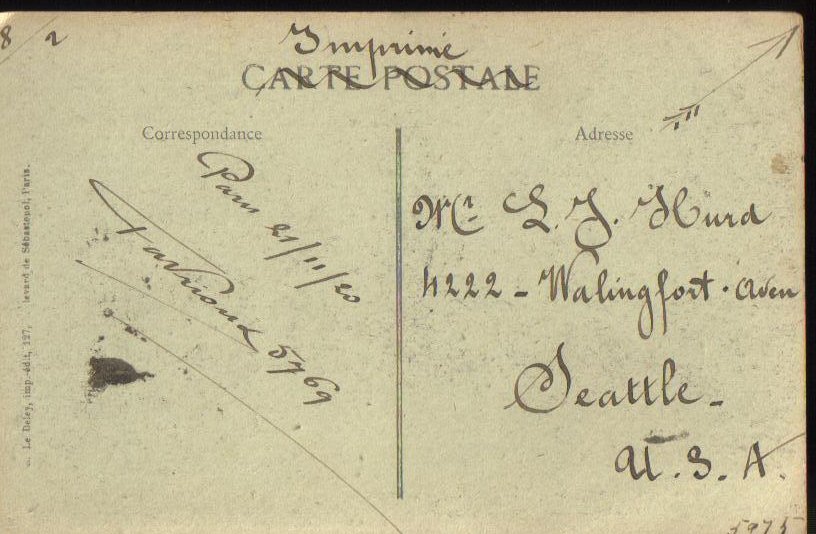 8 2
Imprimé
CARTE POSTALE
Correspondance
Adresse
E. Le Deley, imp.-édit., 127, levard de Sébastopol, Paris.
Paris 21/11/20
5769
Mr. L. J. Hurd
4222 - Walingfort. Aven
Seattle -
U.S.A.
5975